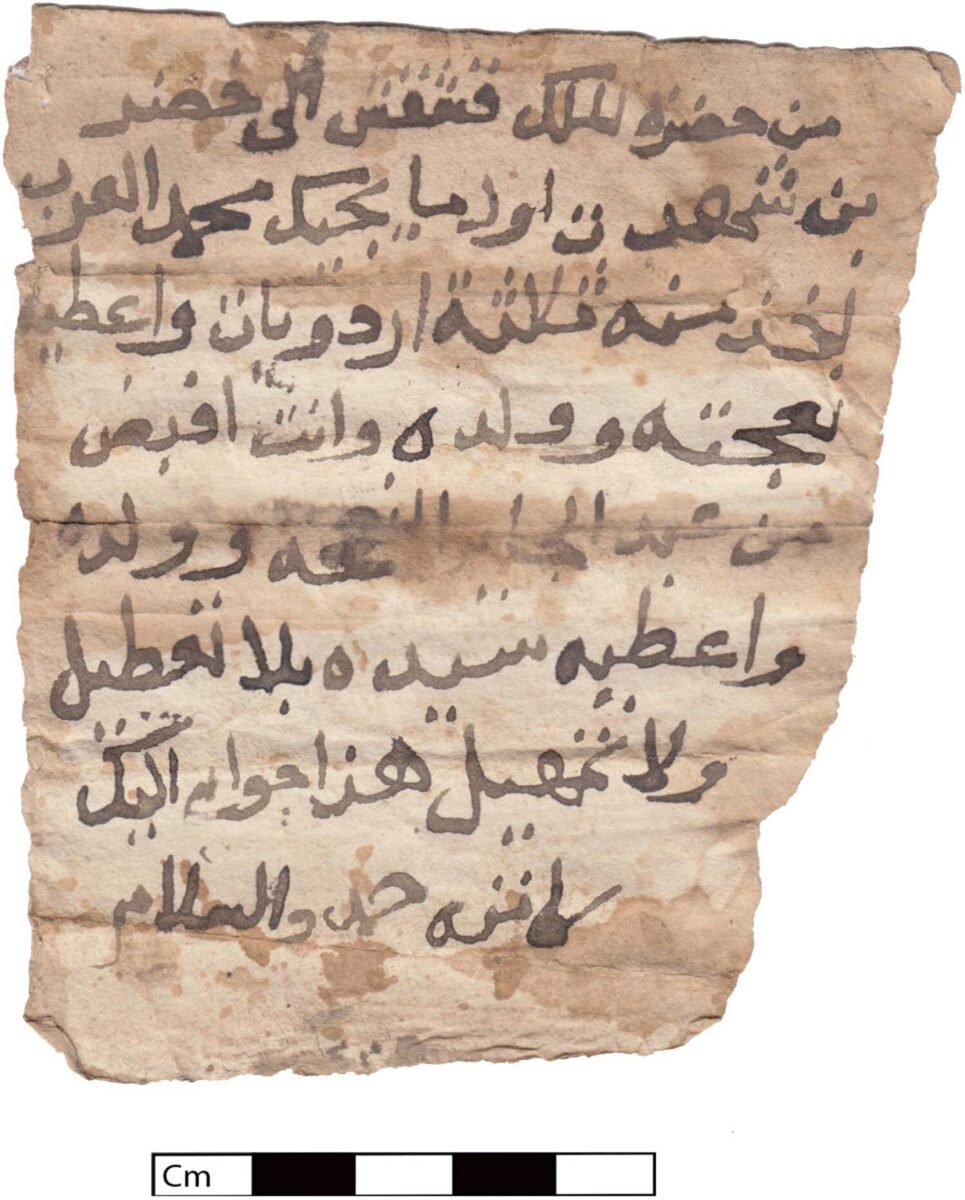 من حضره الملك قشقش الى خضر
بن شهدت اول ما يجيك محمد العرب
تخذ منه ثلاثة اردويات واعطيه
نعجته وولده وانت اقبض
من عبد الجابر النعجه وولده
واعطيه سيده بلا تعطيل
ولا تمهيل هذا جوابي اليك
كاتبه حمد والسلام
Cm